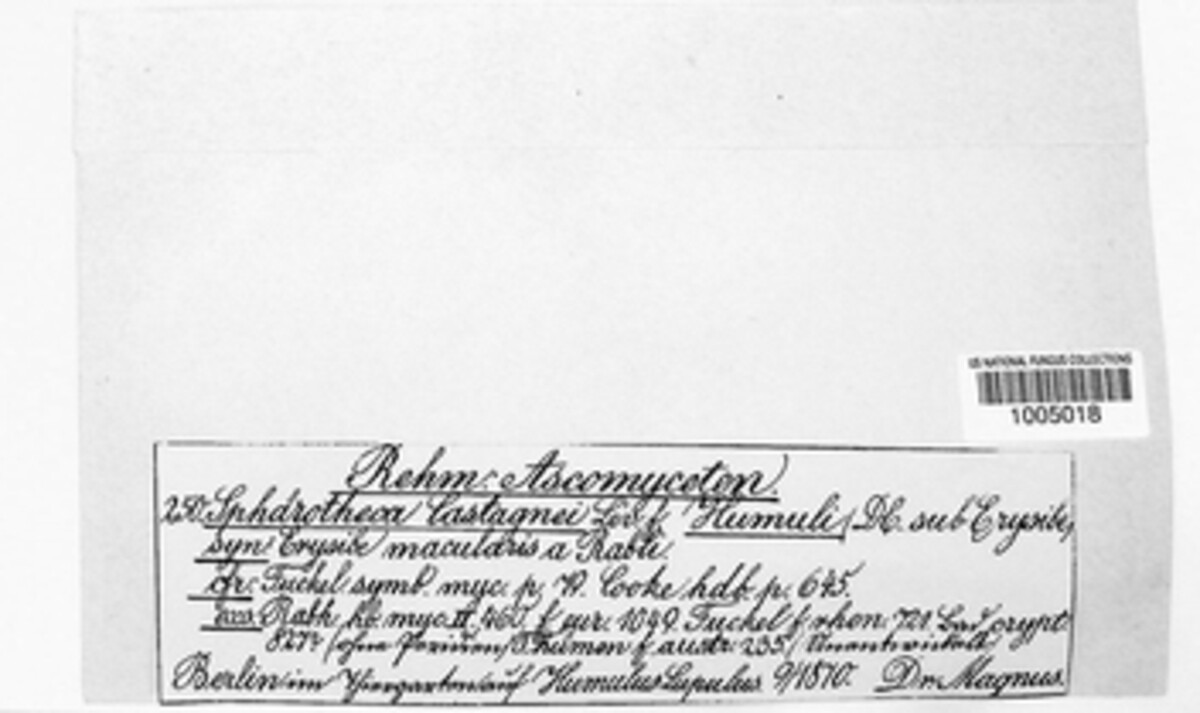 US NATIONAL FUNGUS COLLECTIONS
1005018
Rehm: Ascomyceten.
250. Sphärotheca Castagnei Lév. f. Humuli (DC. sub Erysibe)
syn Erysibe macularis a Rabh.
cfr. Fuckel symb. myc. p. 79. Cooke hdb. p. 645.
Rabh. hb. myc. II, 460, f. eur. 1049. Fuckel f. rhen. 721. crypt.
827. (ohne Perizien) Thümen f. austr. 235
Berlin im Thiergarten auf Humulus Lupulus 9/1870. Dr. Magnus.